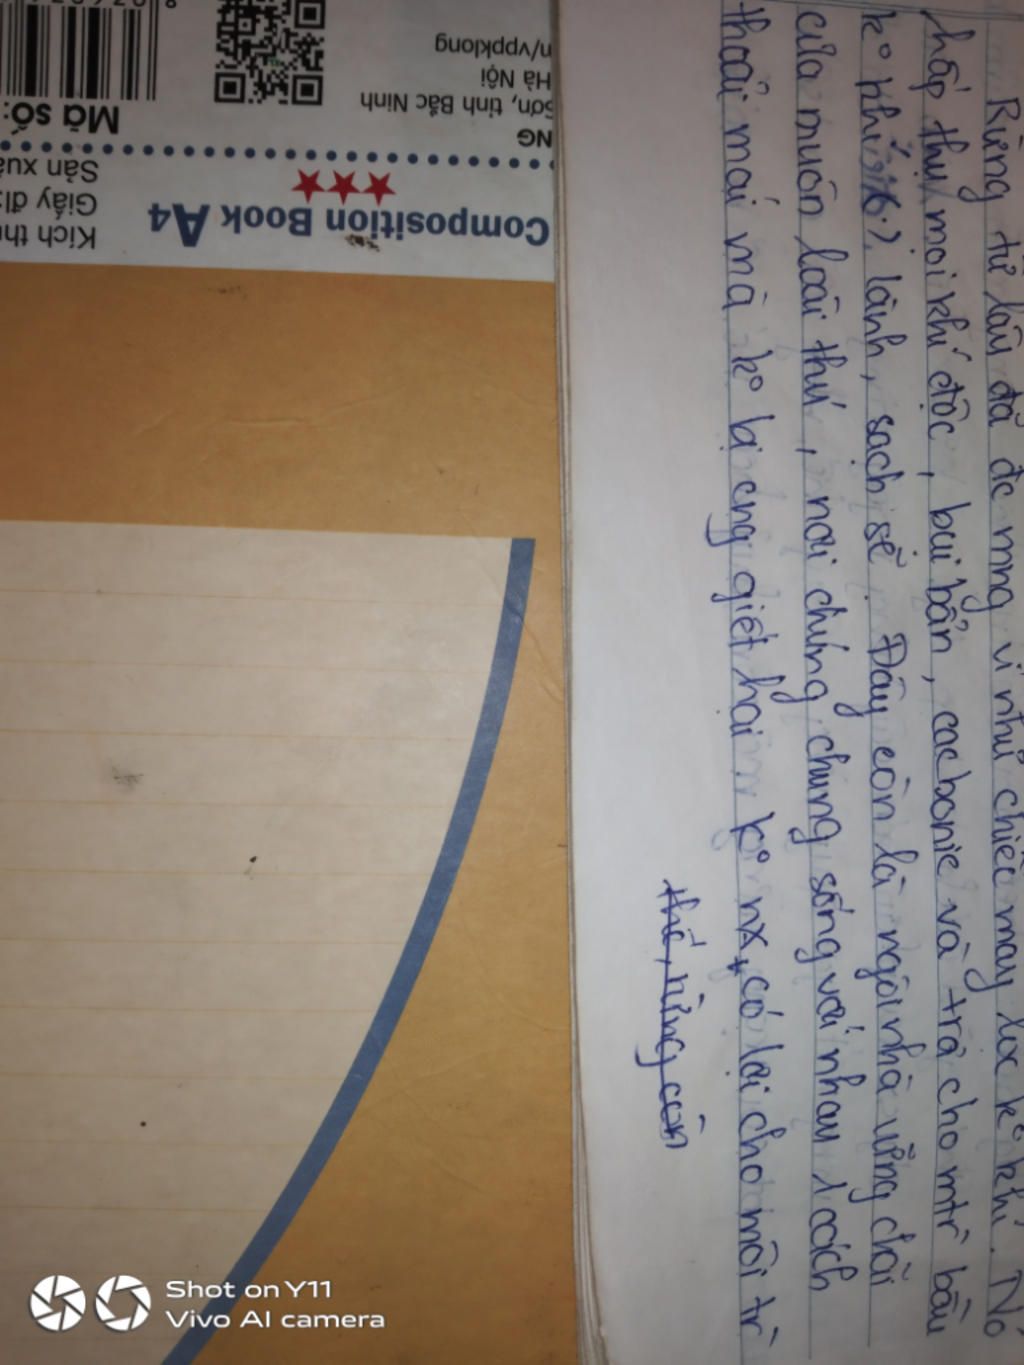 Rừng từ lâu đã đc mng ví như chiếc máy lọc kº khí. Nó
hấp thụ mọi khí độc, bụi bẩn, cacbonic và trả cho mtr bầu
kº khí lành, sạch sẽ. Đây còn là ngôi nhà vững chãi
của muôn loài thú, nơi chúng chung sống với nhau 1 cách
thoải mái mà kº bị cng giết hại kº nx, có lợi cho môi tr
thế, rừng còn
Mã số:
n/vppklong
Hà Nội
Sơn, tỉnh Bắc Ninh
NG
Sản xuấ
Giấy đị
Kích thư
Composition Book A4
Shot on Y11
Vivo AI camera